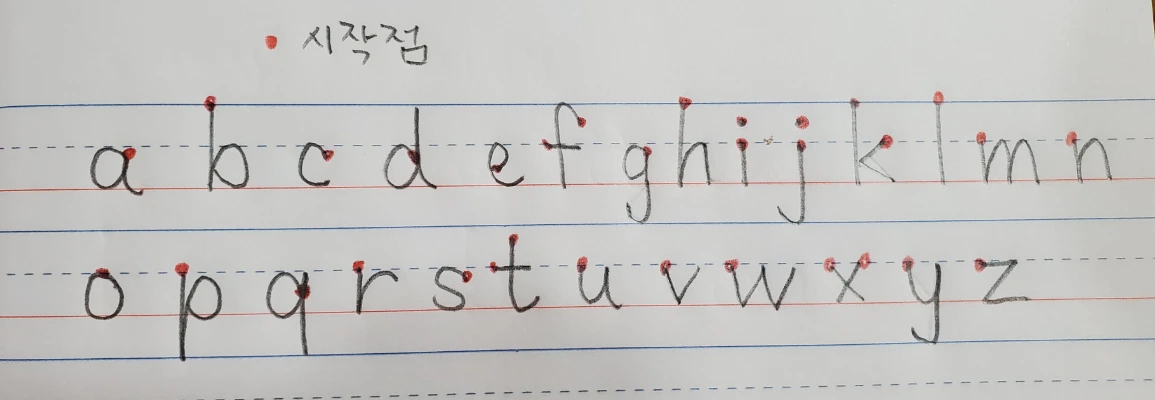 시작점
a b c d e f g h i j k l m n
o p q r s t u v w x y z